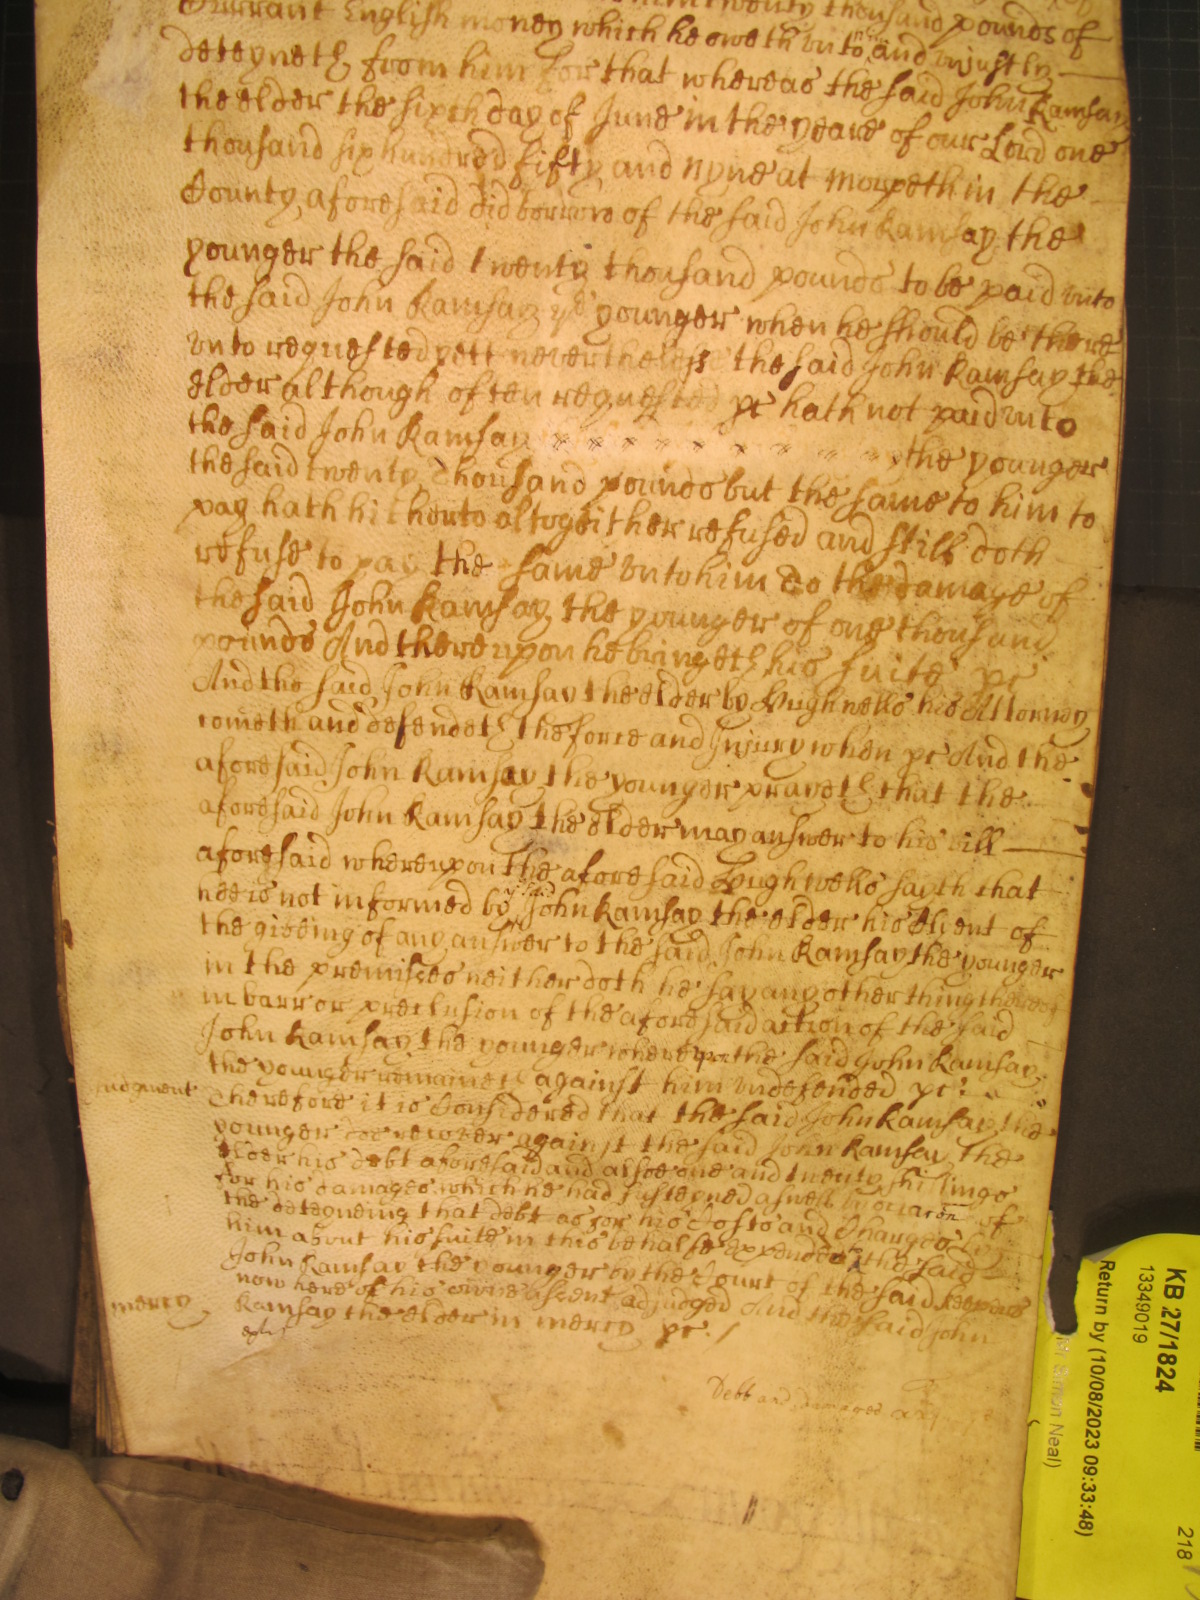 twenty thousand pounds of
Currant English money which he oweth unto and unjustly
deteyneth from him for that whereas the said John Ramsay
the elder the sixth day of June in the yeare of our Lord one
thousand six hundred fifty and nyne at morpeth in the
County aforesaid did borrow of the said John Ramsay the
younger the said twenty thousand pounds to be paid unto
the said John Ramsay ye younger when he should be there
unto requested yett neverthelesse the said John Ramsay the
elder although often requested &c hath not paid unto
the said John Ramsay the younger
the said twenty thousand pounds but the same to him to
pay hath hitherto altogeither refused and still doth
refuse to pay the same unto him To the damage of
the said John Ramsay the younger of one thousand
pounds And thereupon he bringeth his suite &c
And the said John Ramsay the elder by Hugh wells his Attorney
cometh and defendeth the force and Injury when &c And the
aforesaid John Ramsay the younger prayeth that the
aforesaid John Ramsay the elder may answer to his bill
aforesaid whereupon the aforesaid Hugh wells sayth that
hee is not informed by ye said John Ramsay the elder his Clyent of
the giveing of any answer to the said John Ramsay the younger
in the premisses neither doth he say any other thing thereof
in barr or preclusion of the aforesaid action of the said
John Ramsay the younger whereupon the said John Ramsay
the younger remaineth against him undefended &c
Judgment Therefore it is Considered that the said John Ramsay the
younger doe recover against the said John Ramsay the
elder his debt aforesaid and alsoe one and twenty shillings
for his damages which he had susteyned aswell by occacon of
the deteyneing that debt as for his Costs and Charges by
him about his suite in this behalfe expended to the said
John Ramsay the younger by the Court of the said keepers
now here of his owne assent adjudged And the said John
mercy Ramsay the elder in mercy &c
Debt and damages
KB 27/1824
13349019
Return by (10/08/2023 09:33:48)
Simon Neal)
218